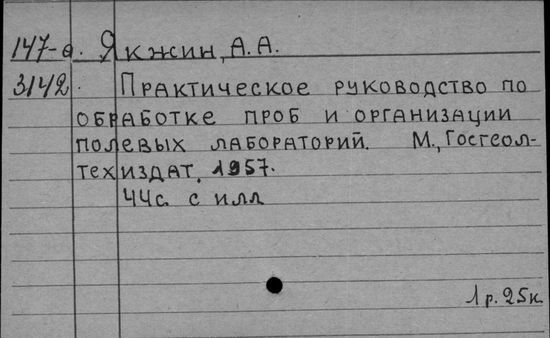 147-а. Якжин, А.А.
3142. Практическое руководство по
обработке проб и организации
полевых лабораторий. М., Госгеол-
техиздат, 1957.
44с. с илл
1 р. 25к.